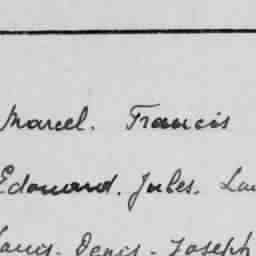 Marcel. Francis
Edouard. Jules.
Denis. Joseph